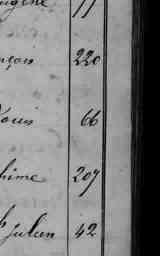 ugène 11
nçois 220
ouis 66
hime 207
h Julien 42